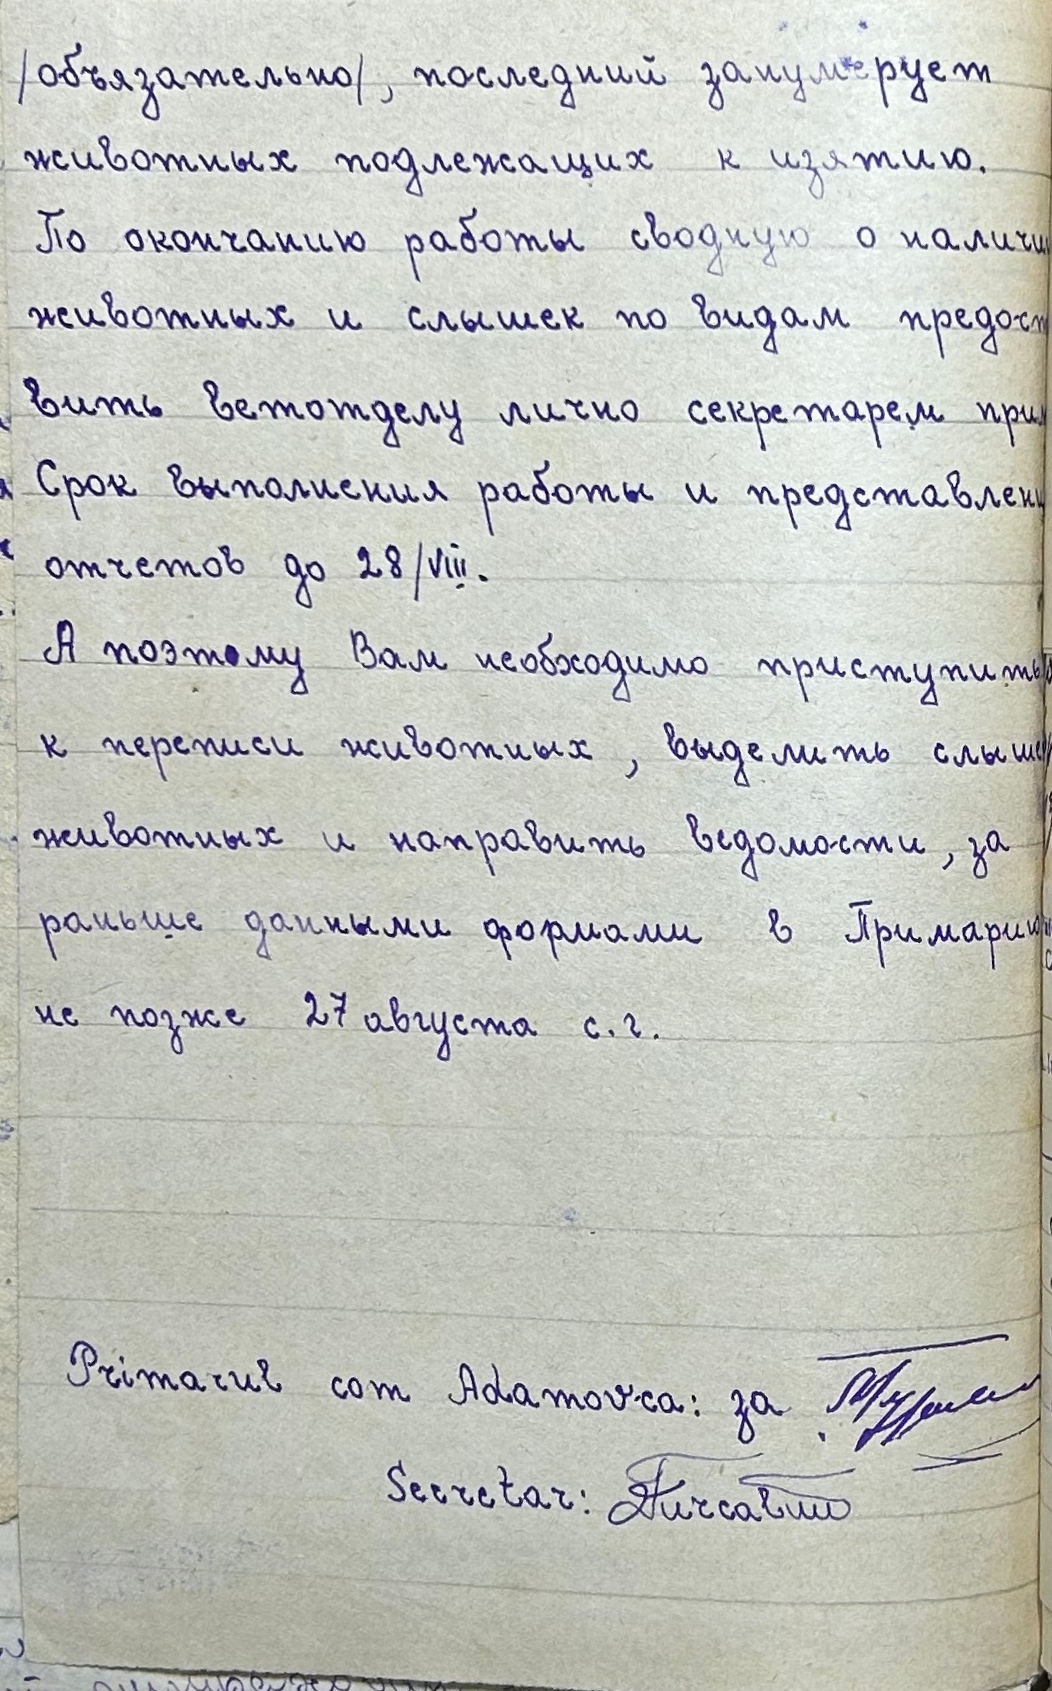 /объязательно/, последний занумерует
животных подлежащих к изятию.
По окончанию работы сводную о наличи
животных и слышек по видам предост
вить ветотделу лично секретарем прим
Срок выполнения работы и представлени
отчетов до 28/VIII.
А поэтому Вам необходимо приступить
к переписи животных, выделить слыше
животных и направить ведомости, за
раньше данными формами в Примарию
не позже 27 августа с.г.
Primarul com Adamovca: за
Secretar: